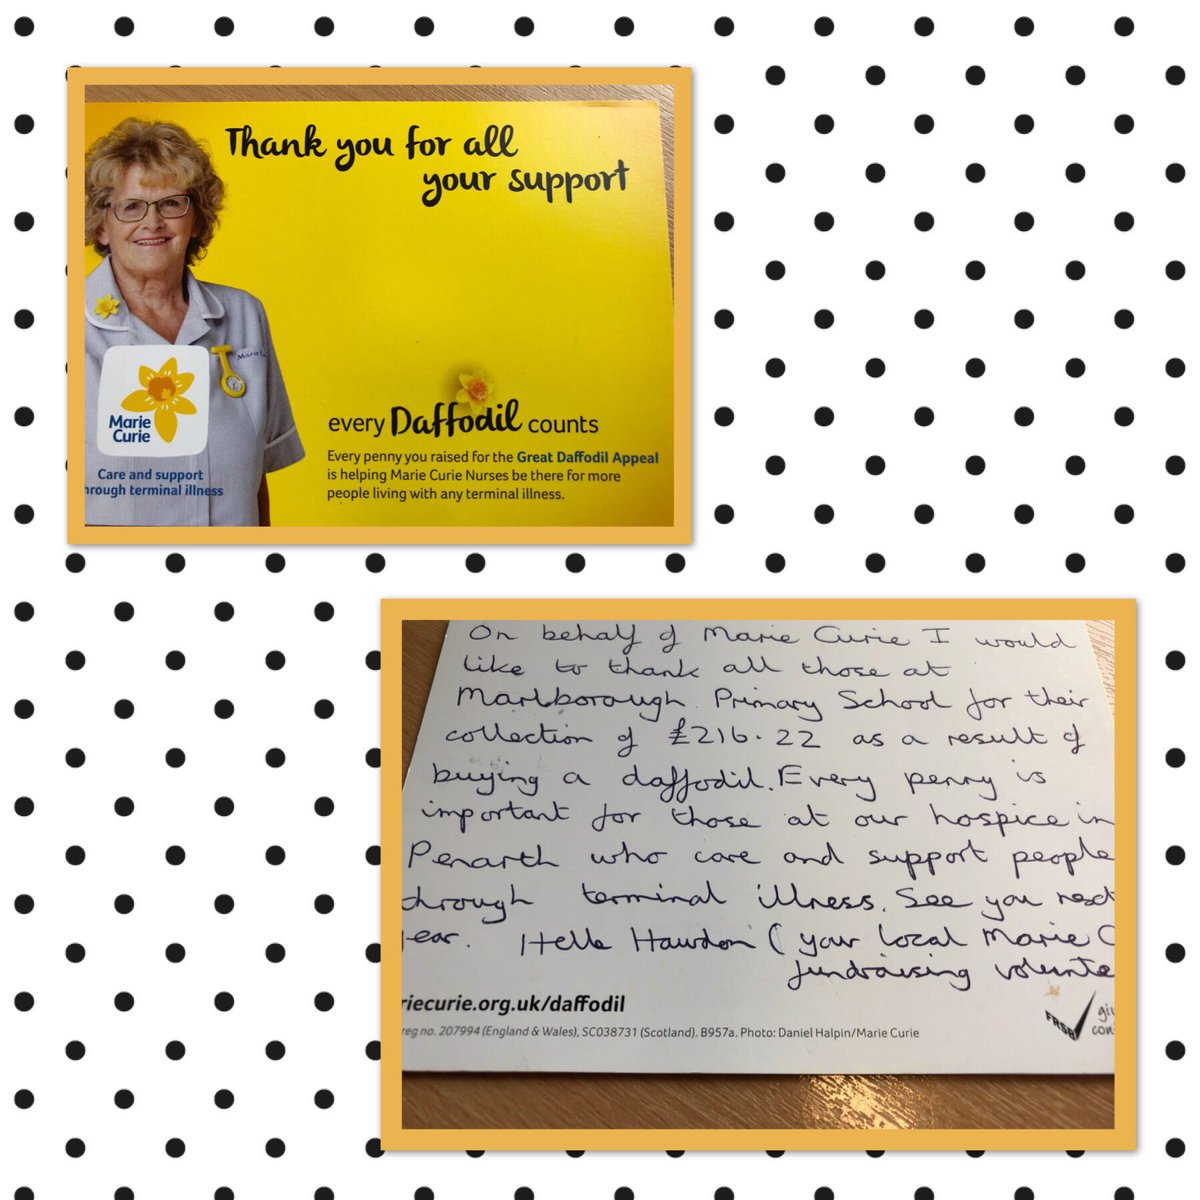 Thank you for all
your support
Marie
Marie
Curie
Care and support
hrough terminal illness
every Daffodil counts
Every penny you raised for the Great Daffodil Appeal
is helping Marie Curie Nurses be there for more
people living with any terminal illness.
On behalf of Marie Curie I would
like to thank all those at
Marlborough Primary School for their
collection of £216.22 as a result of
buying a daffodil. Every penny is
important for those at our hospice in
Penarth who care and support people
through terminal illness. See you next
ear. Hawdon (your local Marie C
fundraising volunte
riecurie.org.uk/daffodil
reg no. 207994 (England & Wales), SC038731 (Scotland). B957a. Photo: Daniel Halpin/Marie Curie
FRSB
giv
con